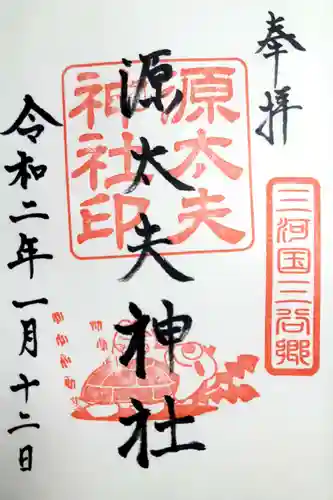 奉拝
三河国三谷郷
源太夫神社
源太夫
神社印
令和二年一月十二日